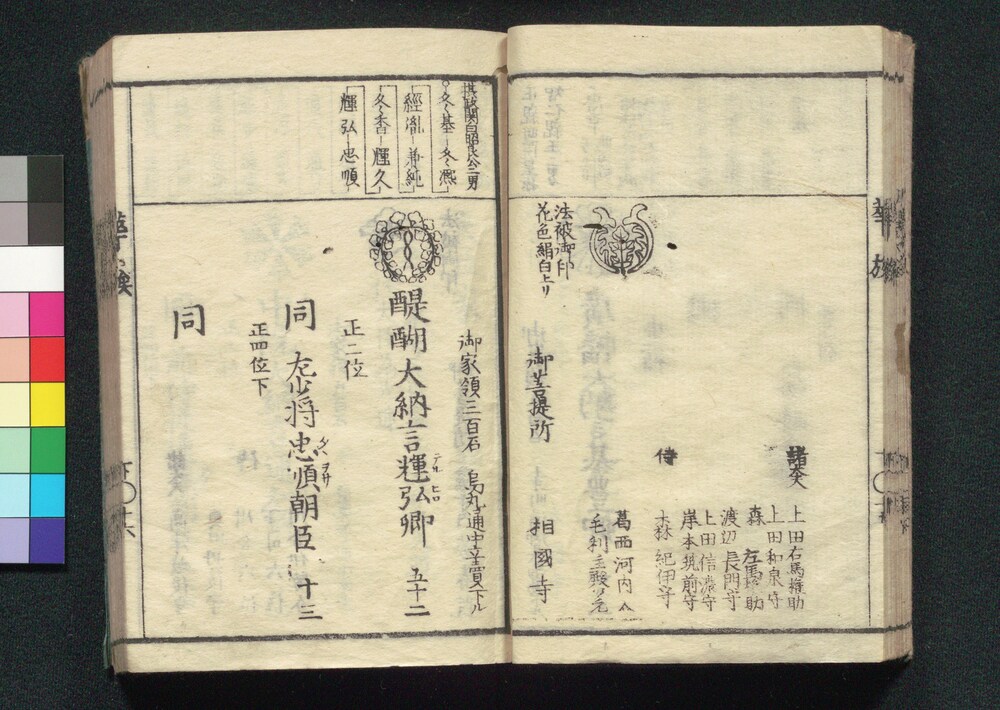 諸大夫
上田右馬権助
上田和泉守
森 左馬権助
渡辺 長門守
上田信濃守
岸本筑前守
侍
森 紀伊守
葛西河内介
毛利主殿少允
法被御印
花色絹白上リ
御菩提所 相國寺
摂政関白昭良公三男
冬基 冬熈
經胤 兼純
冬香 輝久
輝弘 忠順
御家領三百石 烏丸通中立賣下ル
醍醐大納言輝弘卿 五十二
テル ヒロ
正二位
同 左少将忠順朝臣 十三
タヾ ヲサ
正四位下
同
華族
華族